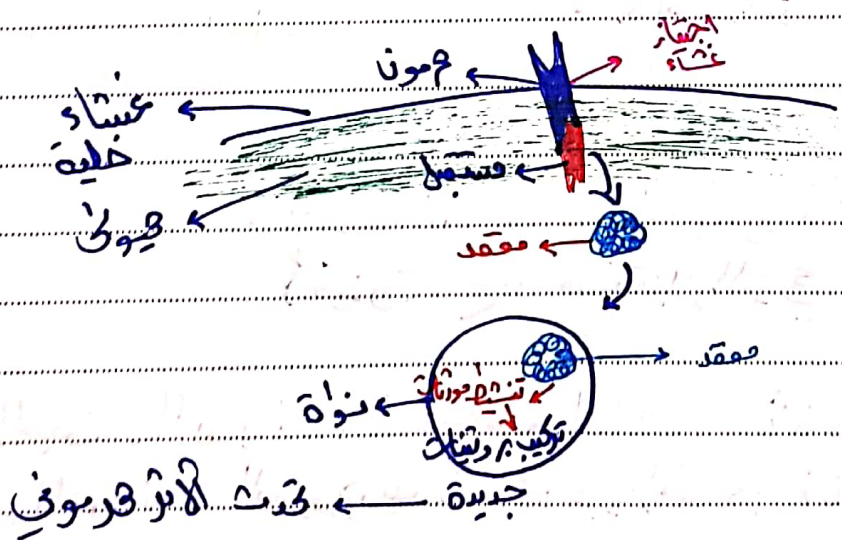 اجتياز
غشاء
هرمون
غشاء
خلية
مستقبل
هيولى
معقد
معقد
تنشيط مورثات
نواة
تركيب بروتينات
جديدة ← تحدث الاثر الهرموني